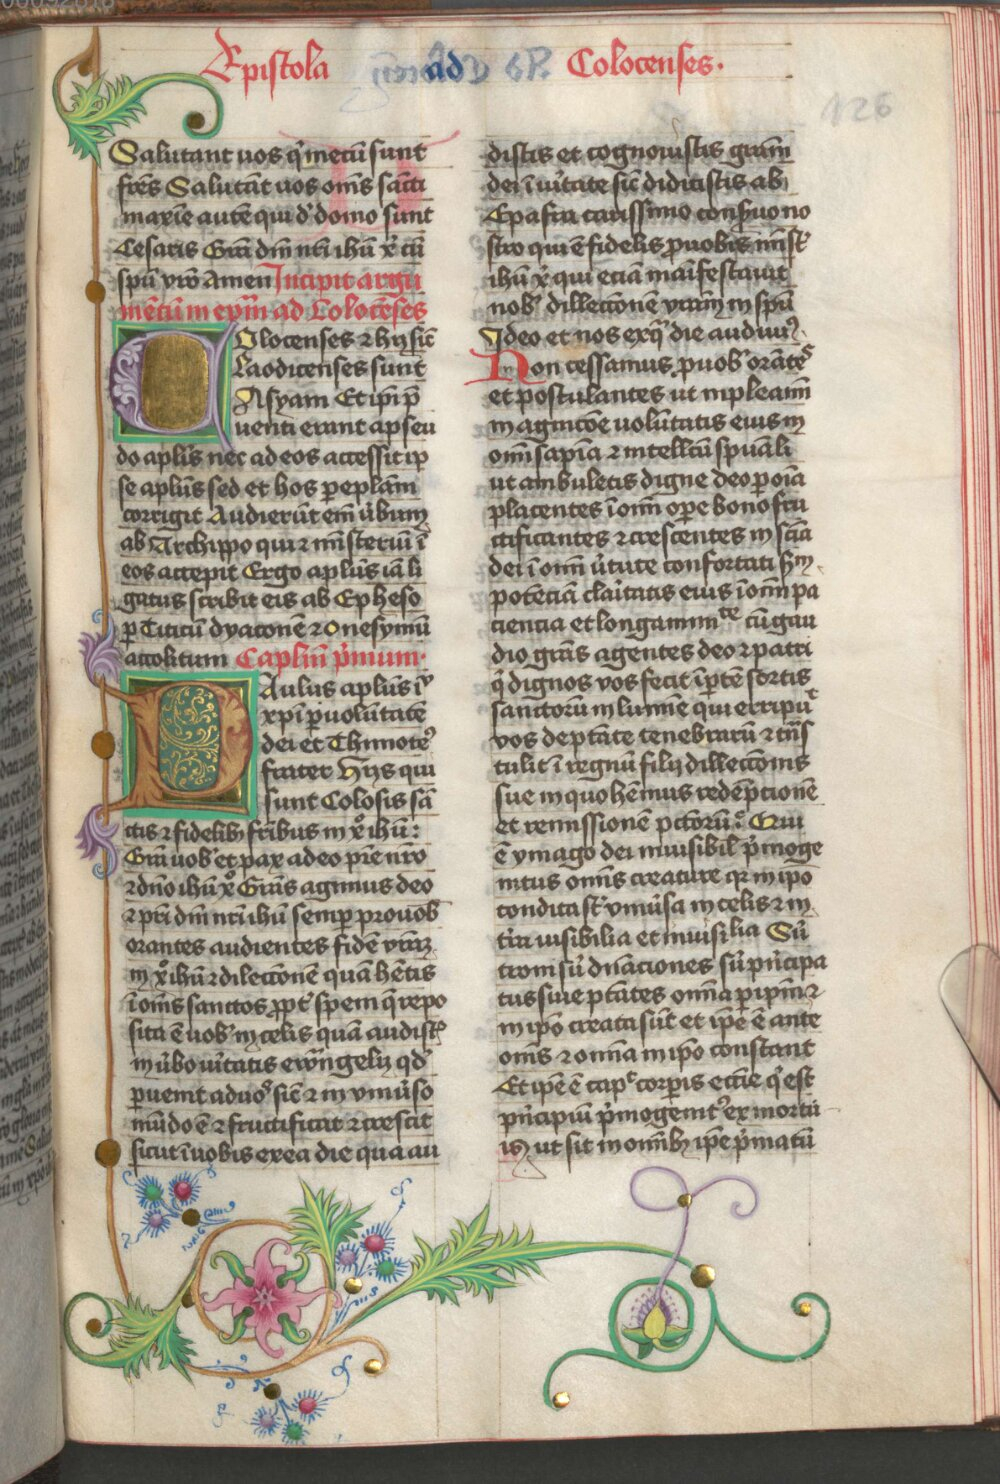 Epistola ad Colocenses.
126
Salutant uos q̓ mecū sunt
fr̄es Salutāt uos om̄s sācti
maxīe autē qui d̓ domo sunt
Cesaris Grā dn̄i nr̄i ihū x̄ cū
spū vr̄o Amen Incipit argu
mētū in ep̄m ad Colocēses
Colocenses ⁊ hij sic̄
Laodicenses sunt
Asyani Et ipi p̄
uenti erant a pseu
do apl̄is nec ad eos accessit ip
se apl̄us sed et hos p̲ epl̄am
corrigit Audierūt em̄ ūbum
ab Archippo qui ⁊ mīsteriū ī
eos accepit Ergo apl̄us iā li
gatus scribit eis ab Epheso
p̲ Titicū dyaconē ⁊ Onesymū
accolitum Caplm̄ p̓mum.
Paulus apl̄us
xp̄i p̲ uolūtatē
dei et Thimoteꝰ
frater Hijs qui
sunt Colosis sā
ctis ⁊ fidelibꝫ fr̄ibus in x̊ ihū:
Grā uob̓ et pax a deo pr̄e nr̄o
⁊ dn̄o ihū x̊ Grās agimus deo
⁊ pr̄i dn̄i nr̄i ihū semp̲ pro uob̓
orantes audientes fidē vr̄am
in x̊ ihū ⁊ dileccionē quā hētis
ī om̄s sanctos ꝓpt̓ spem q̄ repo
sita ē uob̓ in celis quā audistꝭ
in ūbo ūitatis ewāngelij qd̓
p̲uenit ad uoꝰ sic̄ ⁊ in vniūso
mūdo ē ⁊ fructificat ⁊ crescit
sicut ī uobis ex ea die qua au
distis et cognouistis grām
dei ī ūitate sic̄ didicistis ab
Epafra carissimo conf̓uo no
stro qui ē fidelis ꝓ uobis mīstꝭ
ihū x̄ qui eciam māifestauit
nob̓ dilleccionē vr̄am in spū
Ideo et nos ex q̄ die audiuiꝰ
Non cessamus ꝓ uob̓ orātes
et postulantes ut inpleami
in agnicōe uolūtatis eius in
om̄i sapīa ⁊ intellc̄u spūali
ut ambuletis digne deo p̲ oīa
placentes ī om̄i ope̲ bono fru
ctificantes ⁊ crescentes in scīa
dei ī om̄i ūtute confortati s̄m
potēciā claītatis eius ī om̄i pa
ciencia et longanimite cū gau
dio grās agentes deo ⁊ patri
q̓ dignos vos fecit ī p̲tē sortis
sanctorū in lumīe qui erripuit
vos de ptāte tenebrarū ⁊ trāns
tulit ī regnū filij dilleccionis
sue in quo hēmus redēpcionē
et remissionē pctōrū Qui
ē ymago dei inuisibil̓ p̓moge
nitus omīs creature qr in ip̄o
condita st̄ vniūsa in celis ⁊ in
tr̄a uisibilia et inuisilia Siū
troni siū dn̄aciones siū p̓ncipa
tus siue ptātes om̄ia p̲ ipm̄ ⁊
in ip̄o creata sūt et ip̄e ē ante
om̄s ⁊ om̄ia in ip̄o constant
Et ip̄e ē capꝰ corpis eccīe q̓ est
p̓ncipiū p̓mogenitꝰ ex mortu
is ut sit in om̄ibꝫ ip̄e p̓matū